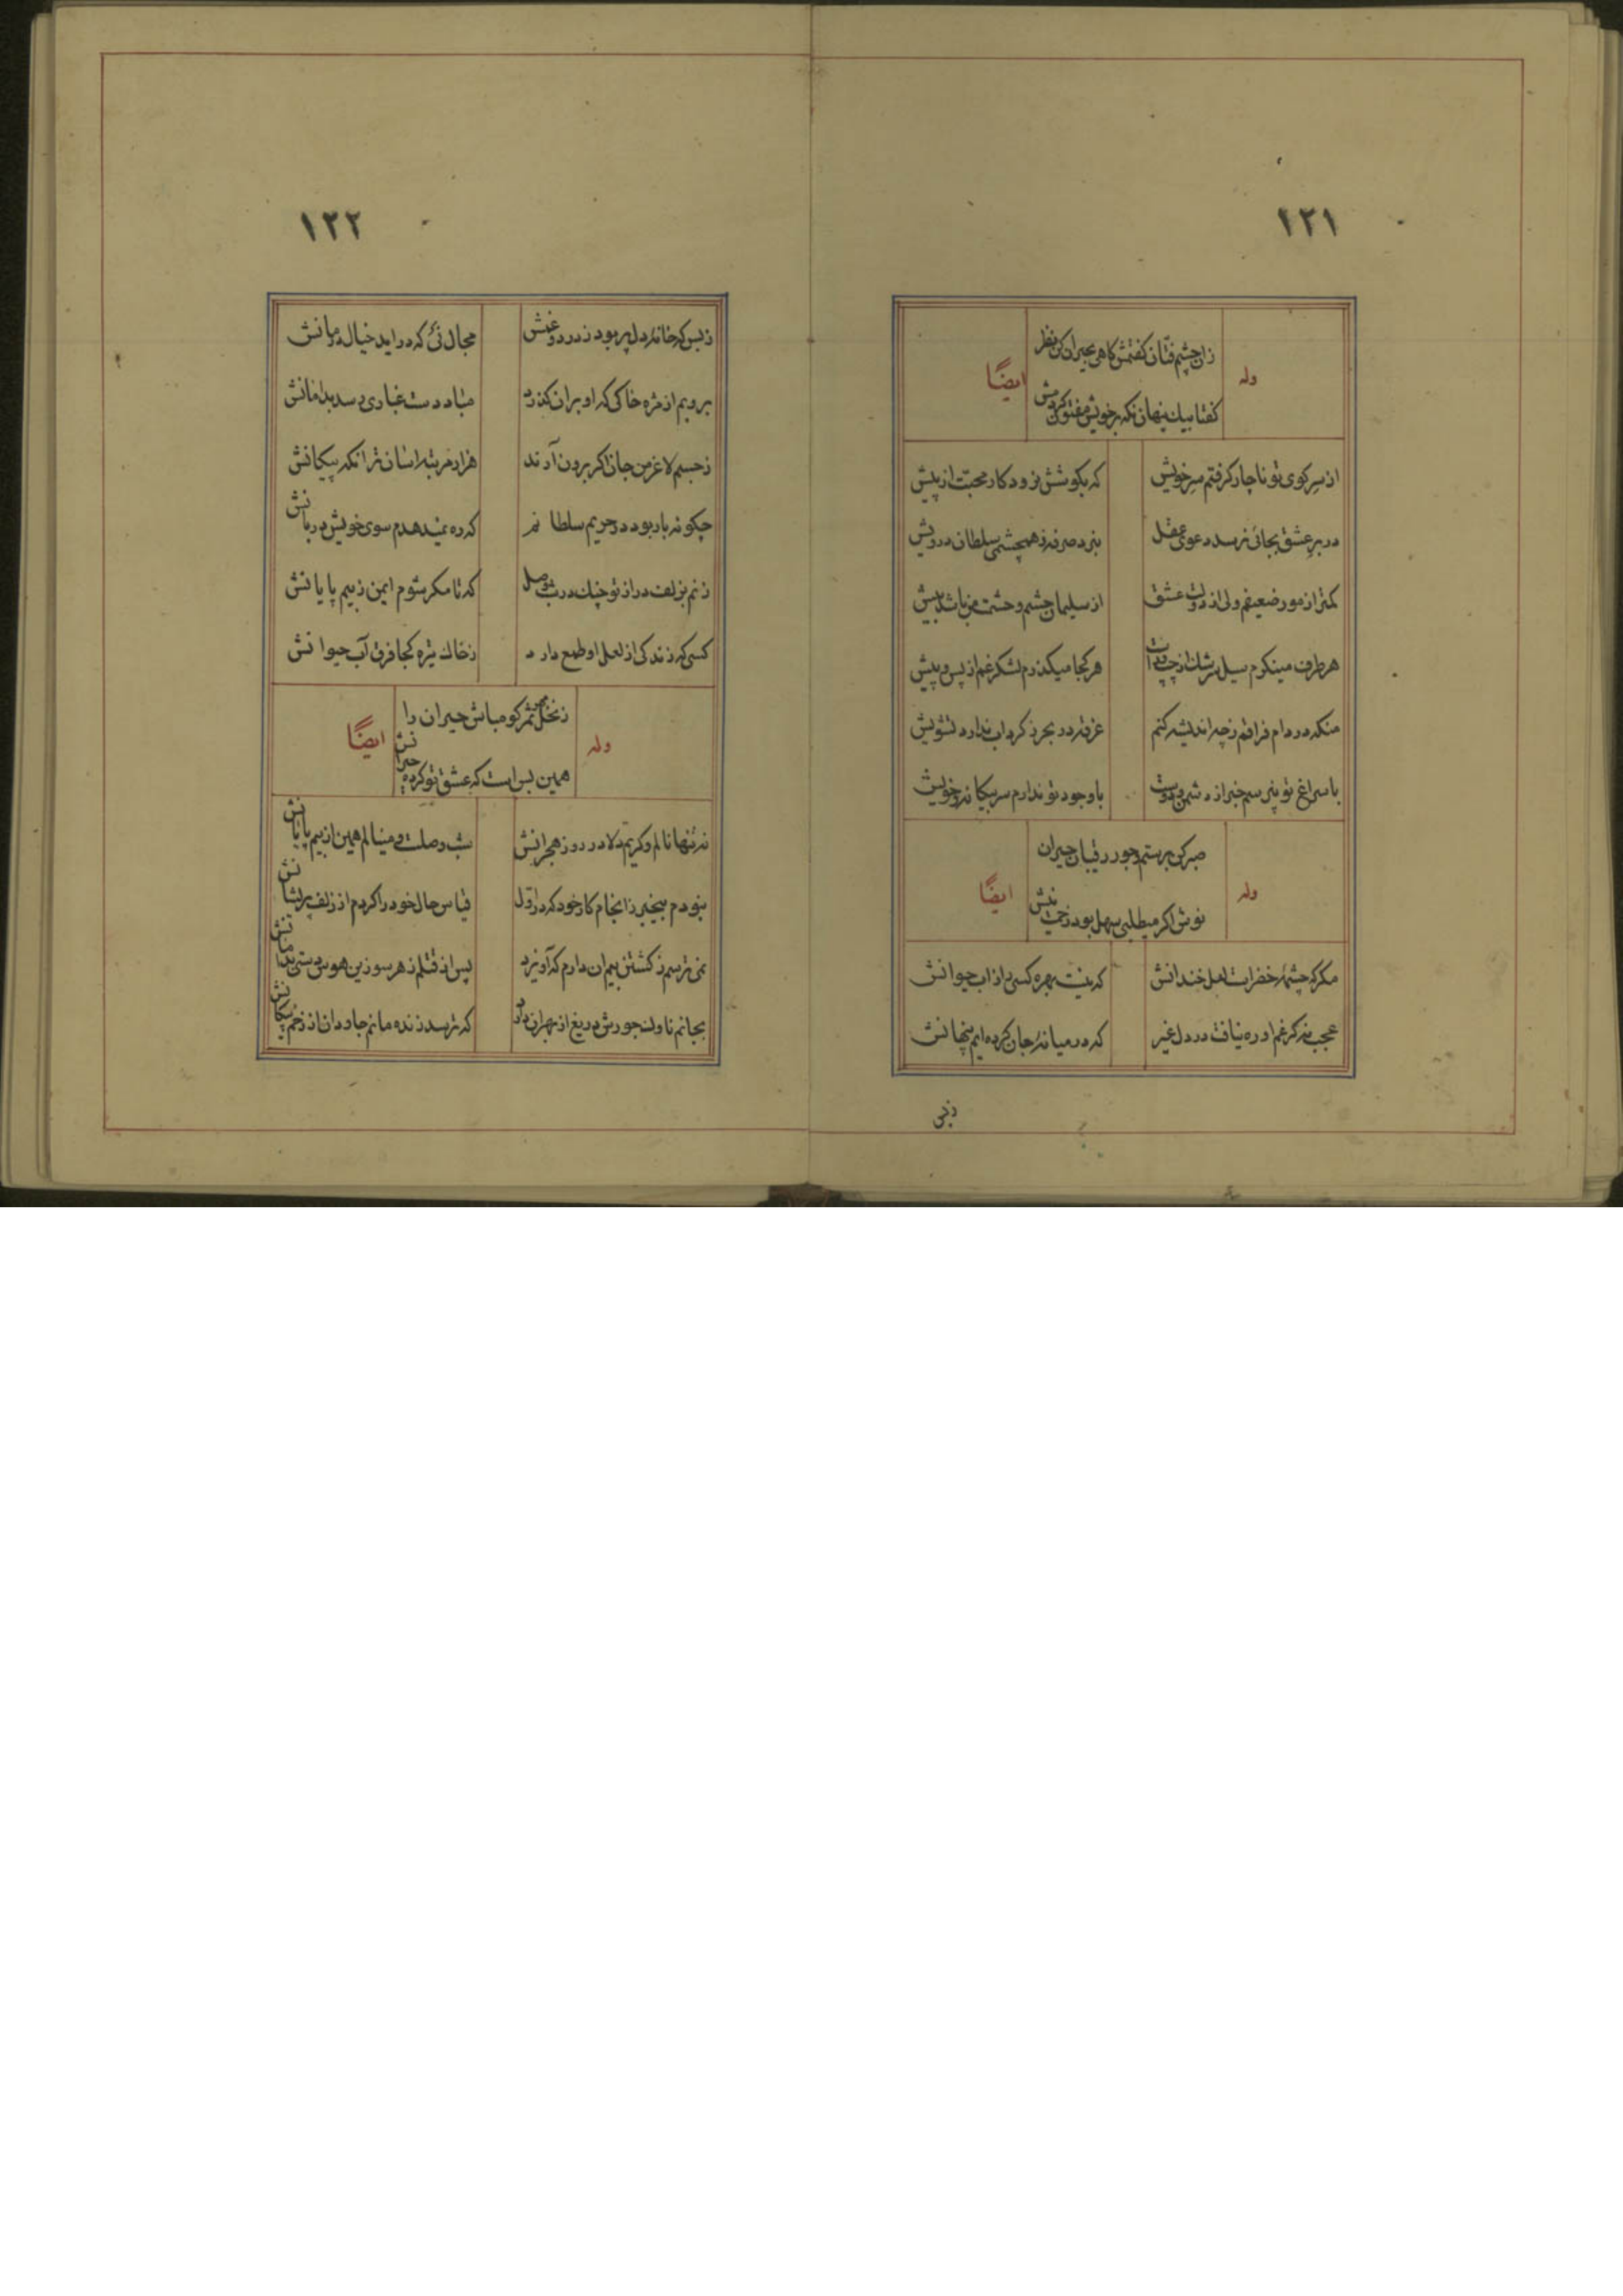 ١٢١
زان چشم فتان کفتمش کاهی بحیران کن نظر
وله ایضاً
کفتا بیك پنهان نکه بر خویش مفتون کردمش
از سر کوی تو ناچار کرفتم سر خویش
که بکوشش نرود کار محبت از پیش
در بر عشق بجائی نرسد دعوی عقل
نبرد صرفه ز همچشمی سلطان درویش
کمتر از مور ضعیفم ولی از دولت عشق
از سلیمان حشم و حشمت من باشد بیش
هر طرف مینکرم سیل سرشك از چپ و راست
هر کجا میکذرم لشکر غم از پس و پیش
منکه در دام فراقم زچه اندیشه کنم
غرقه در بحر ز کرداب ندارد تشویش
با سراغ تو نپرسم خبر از دشمن و دوست
با وجود تو ندارم سر بیکانه و خویش
صبر کن بر ستم و جور رقیبان حیران
وله ایضاً
نوش اکر میطلبی سهل بود زحمت نیش
مکر که چشمهٔ خضر است لعل خندانش
که نیست بهره کسی را ز اب حیوانش
عجب نه کر غم او ره نیافت در دل غیر
که در میانهٔ جان کرده ایم پنهانش
زبس
١٢٢
زبس که خانهٔ دل پر بود ز درد و غمش
مجال نی که در اید خیال درمانش
بروبم از مژه خاکی که او بران کذرد
مباد دست غباری رسد بدامانش
ز جسم لاغر من جان اکر برون آرند
هزار مرتبه اسان تر انکه پیکانش
چکونه بار بود در حریم سلطانم
که ره نمیدهدم سوی خویش دربانش
زنم بزلف دراز تو چنك در شب وصل
که تا مکر شوم ایمن ز بیم پایانش
کسی که زندکی از لعل او طمع دارد
ز خاك تیره کجا فرق آب حیوانش
ز نخل ثمر کو مباش حیران را
وله ایضاً
همین بس است که عشق تو کرده حیرانش
نه تنها نالم و کریم دلا در روز هجرانش
شب وصلت و مینالم همین از بیم پایانش
نبودم بیخبر ز انجام کار خود که در اول
قیاس حال خود را کردم از زلف پریشانش
نمی ترسم ز کشتن بیم ان دارم که آویزد
پس از قتلم ز هر سو زین هوس دستی بدامانش
بجانم ناوك جورش دریغ از بهر ان دارد
که ترسد زنده مانم جاودان از زخم پیکانش